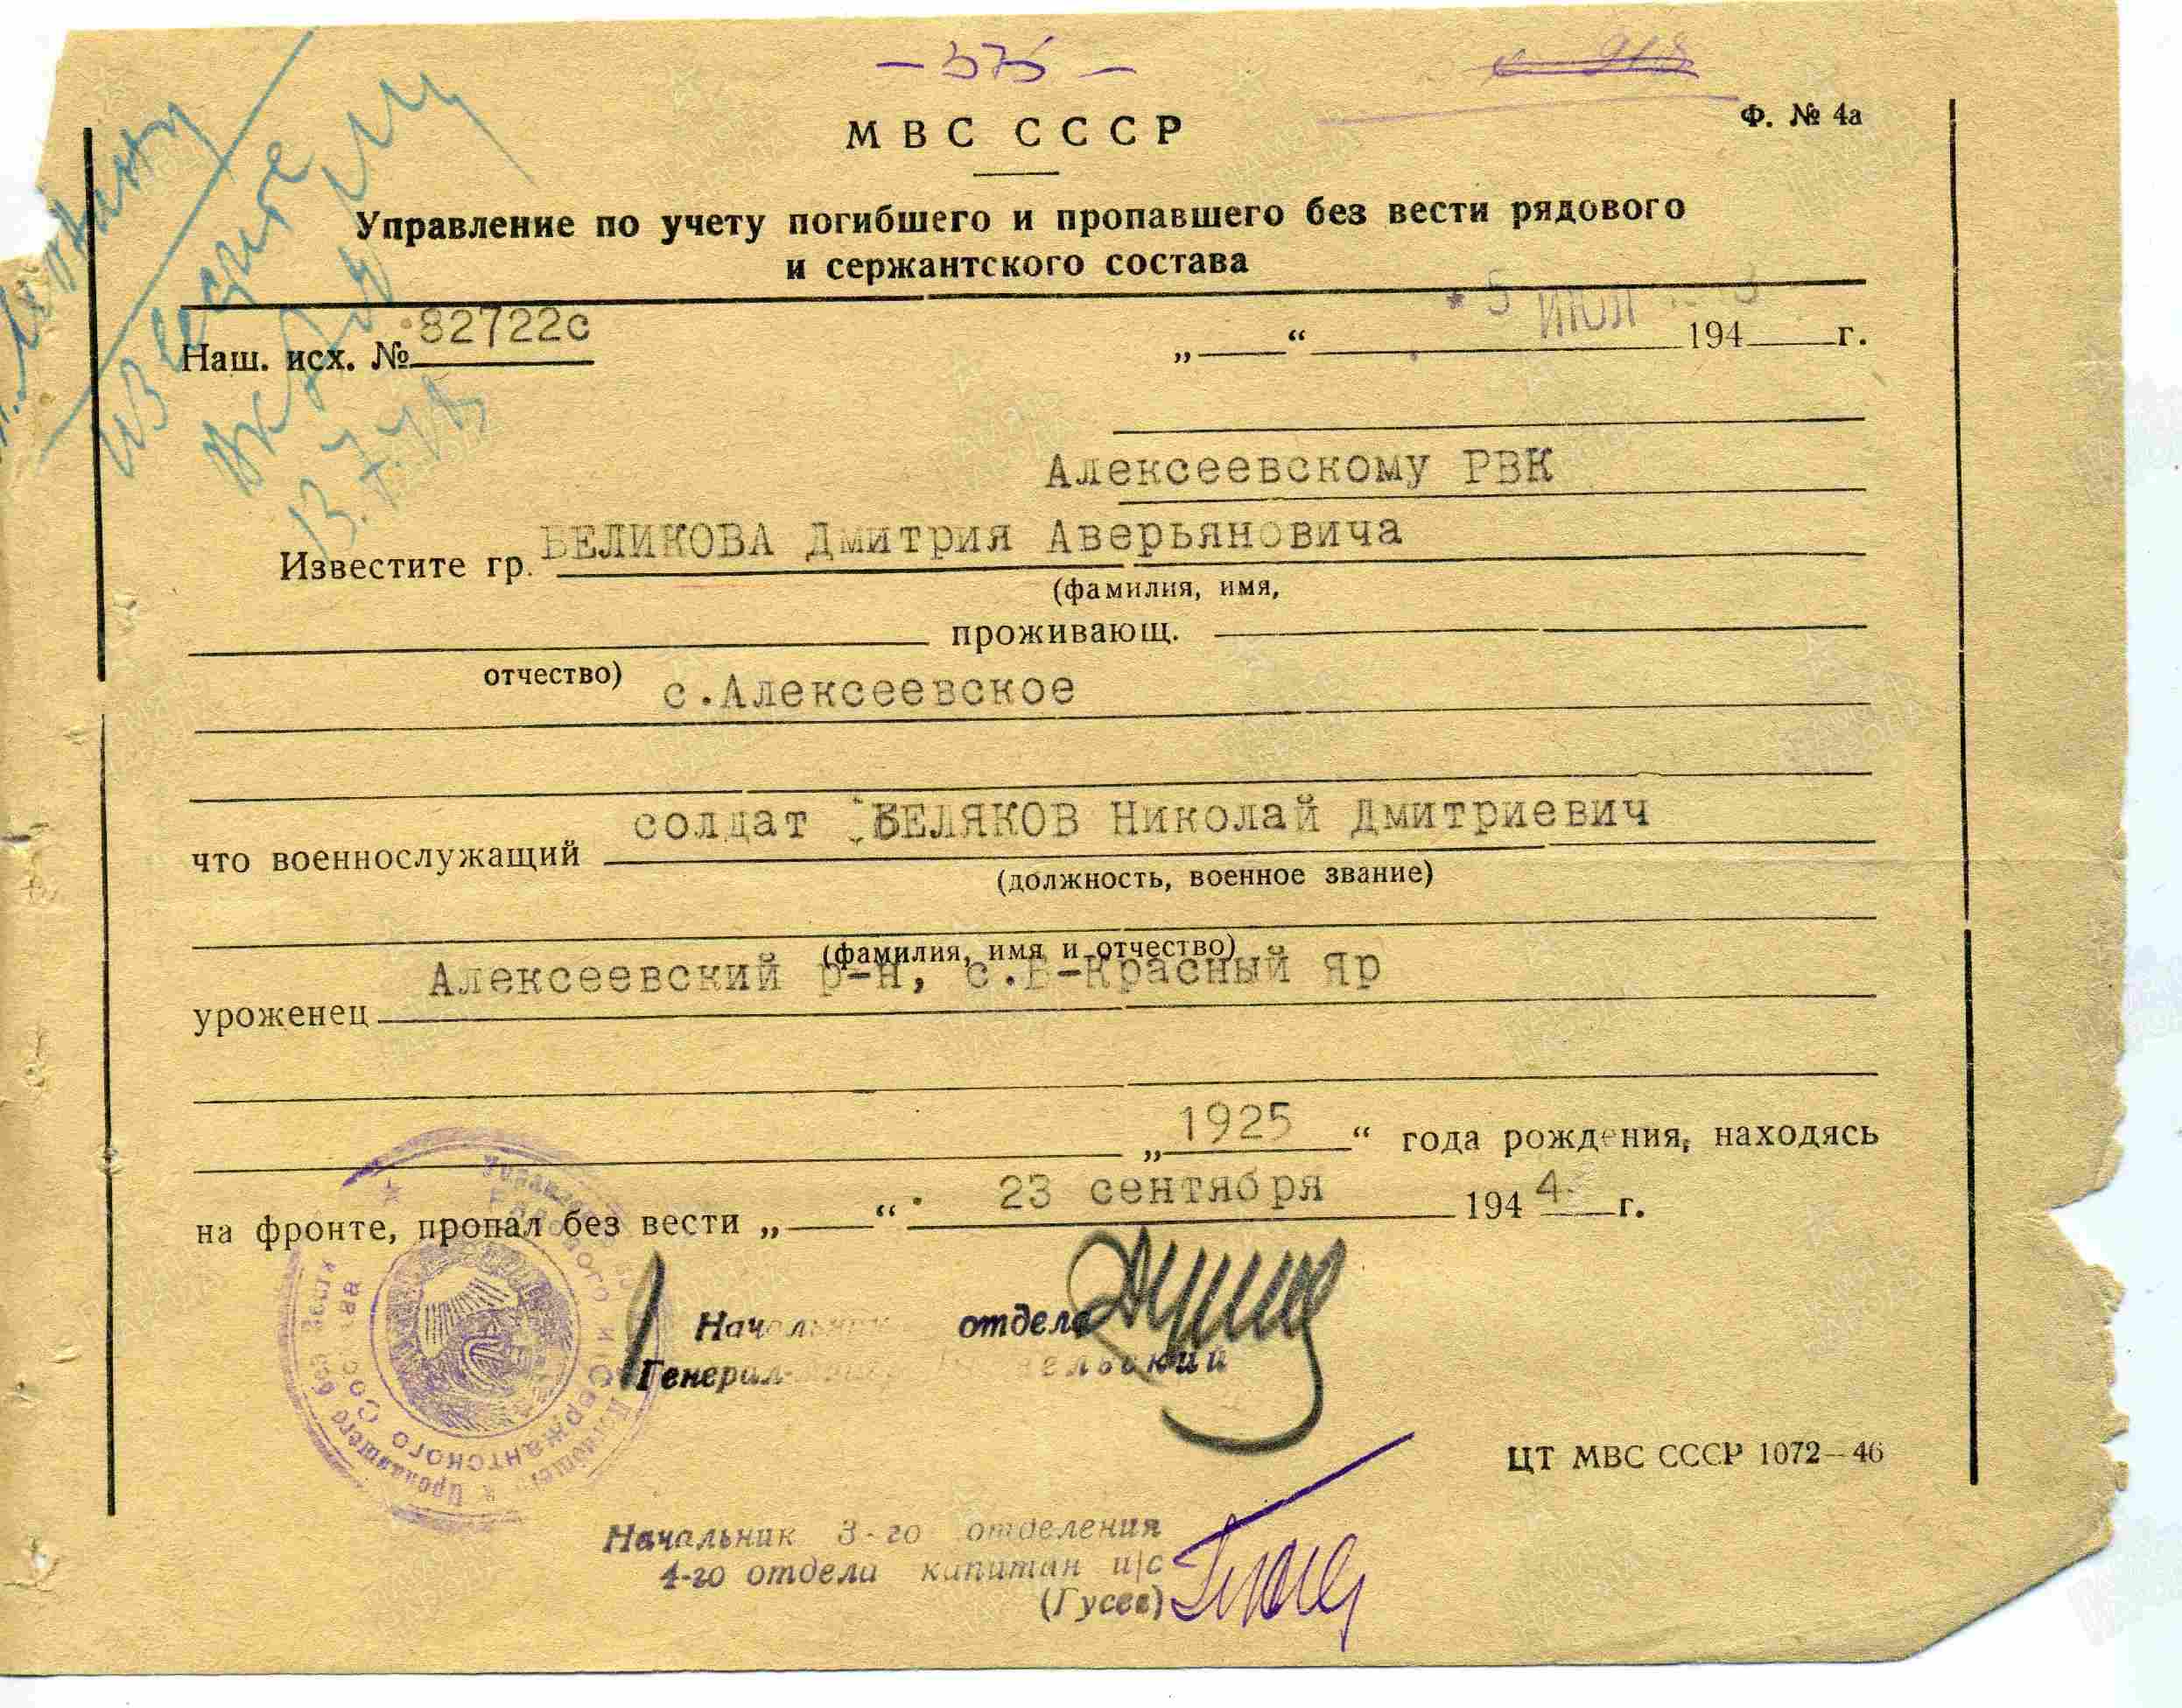 - 375 -
МВС СССР
Ф. № 4а
Управление по учету погибшего и пропавшего без вести рядового
и сержантского состава
Наш. исх. № 82722с
„ “ 5 ИЮЛ 194 г.
Алексеевскому РВК
Известите гр. БЕЛИКОВА Дмитрия Аверьяновича
(фамилия, имя,
проживающ.
отчество)
с.Алексеевское
что военнослужащий солдат БЕЛЯКОВ Николай Дмитриевич
(должность, военное звание)
(фамилия, имя и отчество)
уроженец Алексеевский р-н, с.Б-Красный Яр
„1925“ года рождения, находясь
на фронте, пропал без вести „ “ 23 сентября 1944 г.
Начальник отдела
Генерал-
ЦТ МВС СССР 1072-46
Начальник 3-го отделения
4-го отдела капитан и/с
(Гусев)
Известите
13.7.48